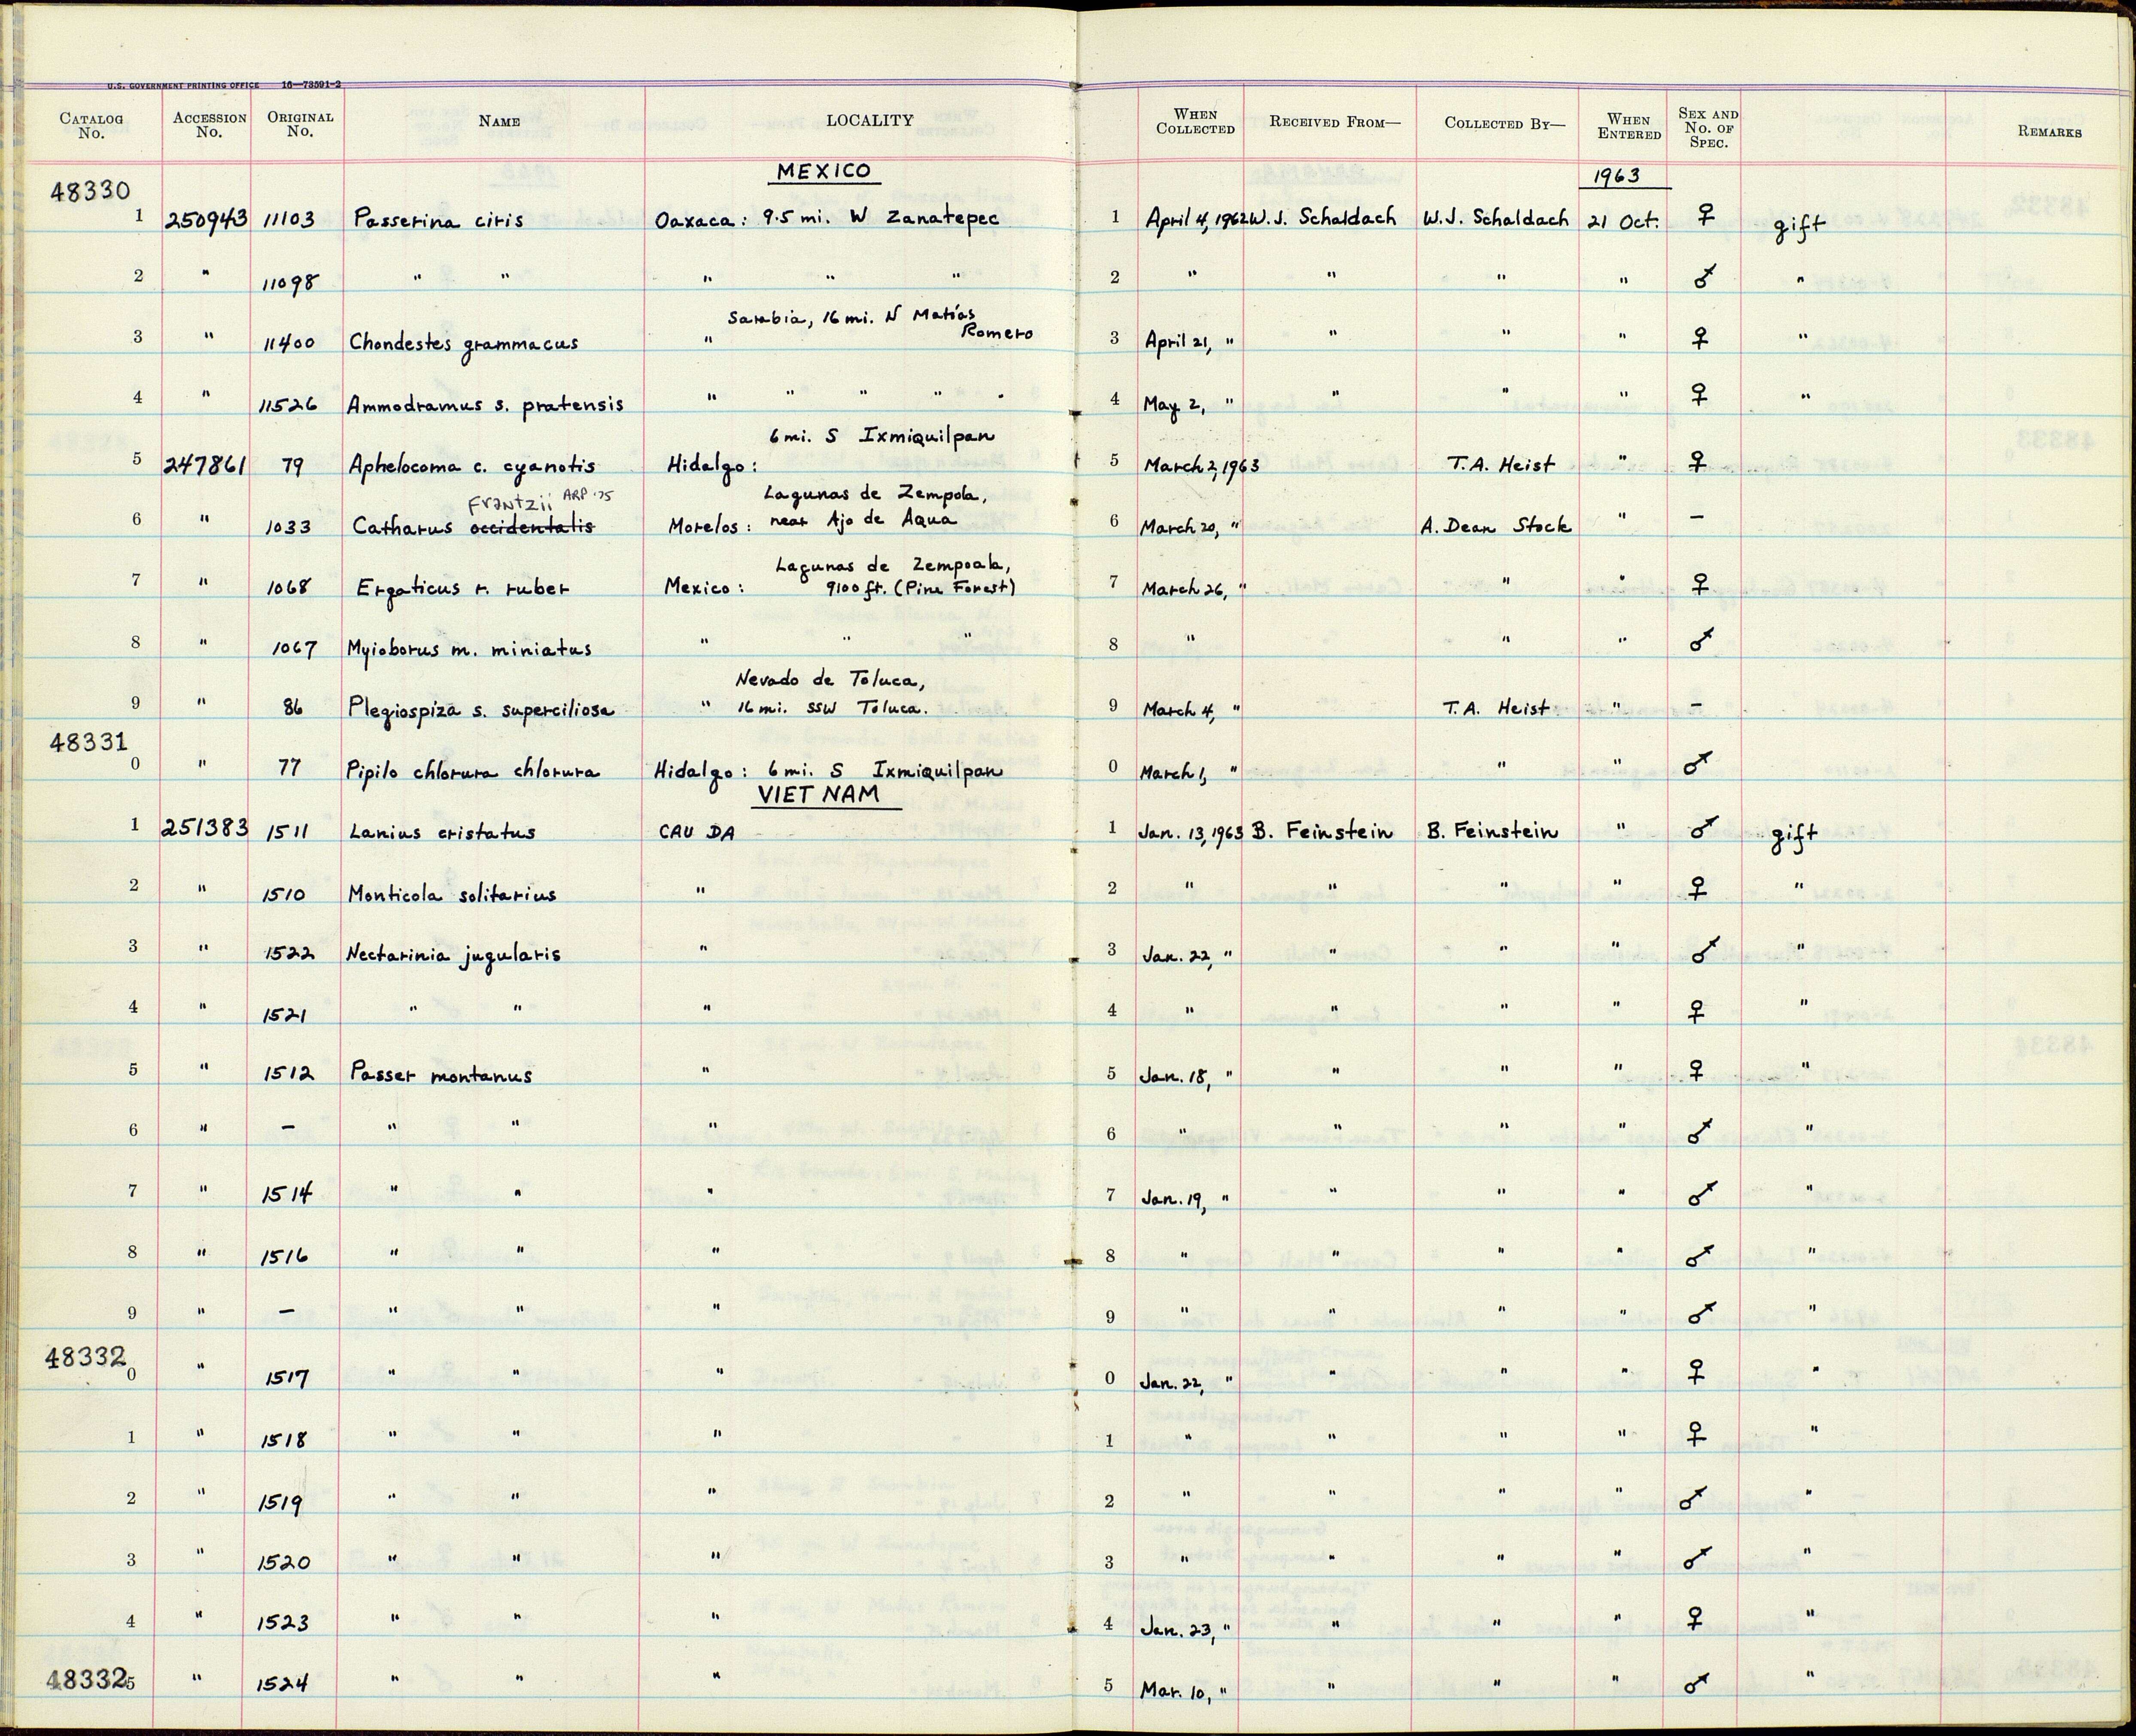 U.S. GOVERNMENT PRINTING OFFICE 16—73591-2
CATALOG No. ACCESSION No. ORIGINAL No. NAME LOCALITY WHEN COLLECTED RECEIVED FROM— COLLECTED BY— WHEN ENTERED SEX AND No. OF SPEC. REMARKS
MEXICO 1963
48330
1 250943 11103 Passerina ciris Oaxaca: 9.5 mi. W Zanatepec 1 April 4, 1962 W. J. Schaldach W. J. Schaldach 21 Oct. ♀ gift
2 " 11098 " " " " " 2 " " " " ♂ "
Sarabia, 16 mi. N Matías
Romero
3 " 11400 Chondestes grammacus " 3 April 21, " " " " ♀ "
4 " 11526 Ammodramus s. pratensis " " " " " 4 May 2, " " " " ♀ "
6 mi. S Ixmiquilpan
5 247861 79 Aphelocoma c. cyanotis Hidalgo: 5 March 2, 1963 T. A. Heist " ♀
Frantzii ARP '75 Lagunas de Zempola,
6 " 1033 Catharus occidentalis Morelos: near Ajo de Aqua 6 March 20, " A. Dean Stock " –
Lagunas de Zempoala,
7 " 1068 Ergaticus r. ruber Mexico: 9100 ft. (Pine Forest) 7 March 26, " " " ♀
8 " 1067 Myioborus m. miniatus " " " 8 " " " ♂
Nevado de Toluca,
9 " 86 Plegiospiza s. superciliosa " 16 mi. SSW Toluca. 9 March 4, " T. A. Heist " –
48331
0 " 77 Pipilo chlorura chlorura Hidalgo: 6 mi. S Ixmiquilpan 0 March 1, " " " ♂
VIET NAM
1 251383 1511 Lanius cristatus CAU DA 1 Jan. 13, 1963 B. Feinstein B. Feinstein " ♂ gift
2 " 1510 Monticola solitarius " 2 " " " " ♀ "
3 " 1522 Nectarinia jugularis " 3 Jan. 22, " " " " ♂ "
4 " 1521 " " " 4 " " " " ♀ "
5 " 1512 Passer montanus " 5 Jan. 18, " " " " ♀ "
6 " – " " " 6 " " " " ♂ "
7 " 1514 " " " 7 Jan. 19, " " " " ♂ "
8 " 1516 " " " 8 " " " " ♂ "
9 " – " " " 9 " " " " ♂ "
48332
0 " 1517 " " " 0 Jan. 22, " " " " ♀ "
1 " 1518 " " " 1 " " " " ♀ "
2 " 1519 " " " 2 " " " " ♂ "
3 " 1520 " " " 3 " " " " ♂ "
4 " 1523 " " " 4 Jan. 23, " " " " ♀ "
48332 5 " 1524 " " " 5 Mar. 10, " " " " ♂ "